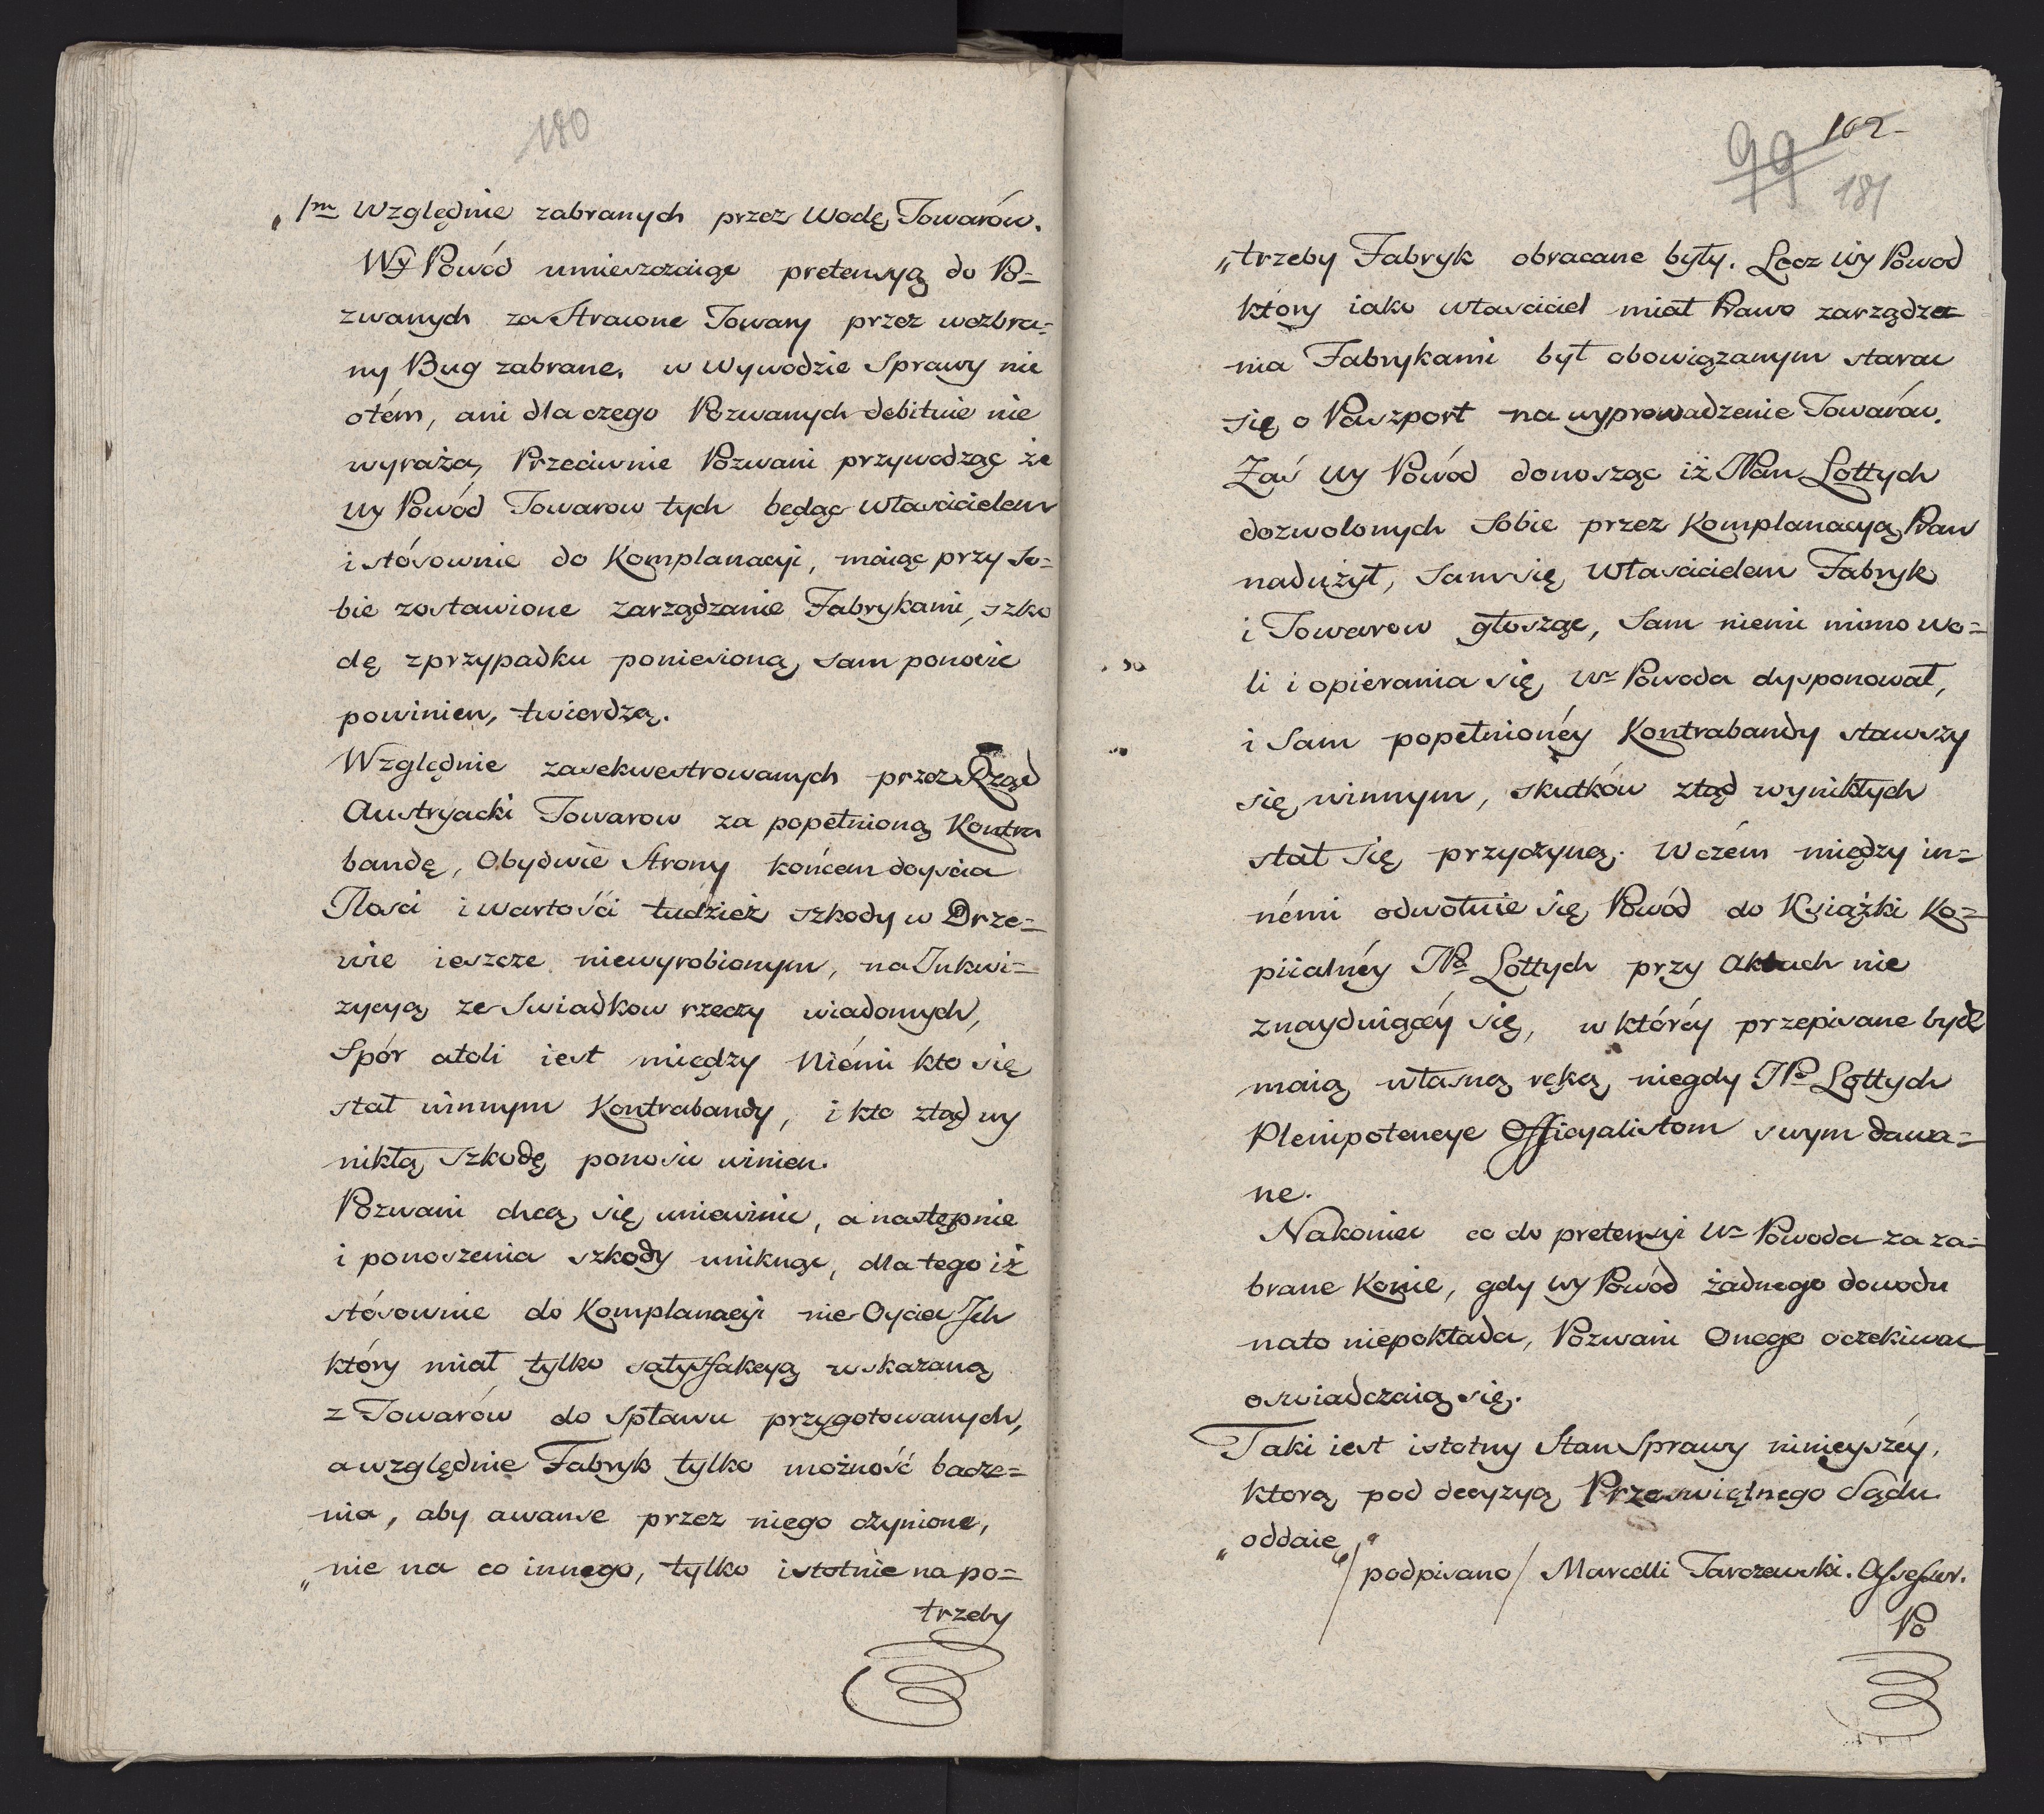 180
„1m Względnie zabranych przez Wodę Towarów.
Wy Powód umieszczaiąc pretensyą do Po=
zwanych za Stracone Towary przez wezbra=
ny Bug zabrane, w Wywodzie Sprawy nic
otém, ani dla czego Pozwanych debitnie nie
wyraża, Przeciwnie Pozwani przywodząc że
Wy Powód Towarow tych będąc Własicielem
i stósownie do Komplanacyi, maiąc przy So=
bie zostawione zarządzanie Fabrykami, szko
dę zprzypadku poniesioną, sam ponosic
powinien, twierdzą.
Względnie zasekwestrowanych przez Rząd
Austryacki Towarow za popełnioną Kontra
bandę, Obydwie Strony końcem doyscia
Ilosci i wartośći tudzież szkody w Drze=
wie ieszcze niewyrobionym, na Inkwi=
zycyą ze Swiadkow rzeczy wiadomych,
Spór atoli iest między Niémi kto się
stał winnym Kontrabandy, i kto ztąd wy
nikłą szkodę ponosic winien.
Pozwani chcą się uniewinic, a następnie
i ponoszenia szkody uniknąc, dla tego iż
stósownie do Komplanacyi nie Oyciec Ich
który miał tylko satysfakcyą wskazaną
z Towarów do Spławu przygotowanych,
a względnie Fabryk tylko możność bacze=
nia, aby awanse przez niego czynione,
„nie na co innego, tylko istotnie na po=
trzeby
99
102-
181
„trzeby Fabryk obracane były. Lecz Wy Powod
który iako własciciel miał Prawo zarządza
nia Fabrykami był obowiązanym starac
się o Paszport na wyprowadzenie Towarów.
Zaś Wy Powód donosząc iż JPan Lottych
dozwolonych sobie przez Komplanacyą Praw
nadużył, samsię Własicielem Fabryk
i Towarow głosząc, sam niemi mimo wo=
li i opierania się Wo Powoda dysponował,
i Sam popełnionéy Kontrabandy stawszy
się winnym, skutków ztąd wynikłych
stał się przyczyną. W czém między in=
némi odwołuie się Powód do Książki Ko=
piialnéy JPa Lottych przy Aktach nie
znayduiącéy się, w któréy przepisane bydź
maią własną ręką niegdy JPa Lottych
Plenipotencye Officyalistom swym dawa=
ne.
Nakoniec co do pretensyi Wo Powoda za za=
brane Konie, gdy Wy Powód żadnego dowodu
nato niepokłada, Pozwani Onego oczekiwac
oswiadczaią się.
Taki iest istotny Stan Sprawy ninieyszéy,
ktorą pod decyzyą Przeświętnego Sądu
„oddaie„
/podpisano/ Marcelli Tarczewski. Assessor.
Po